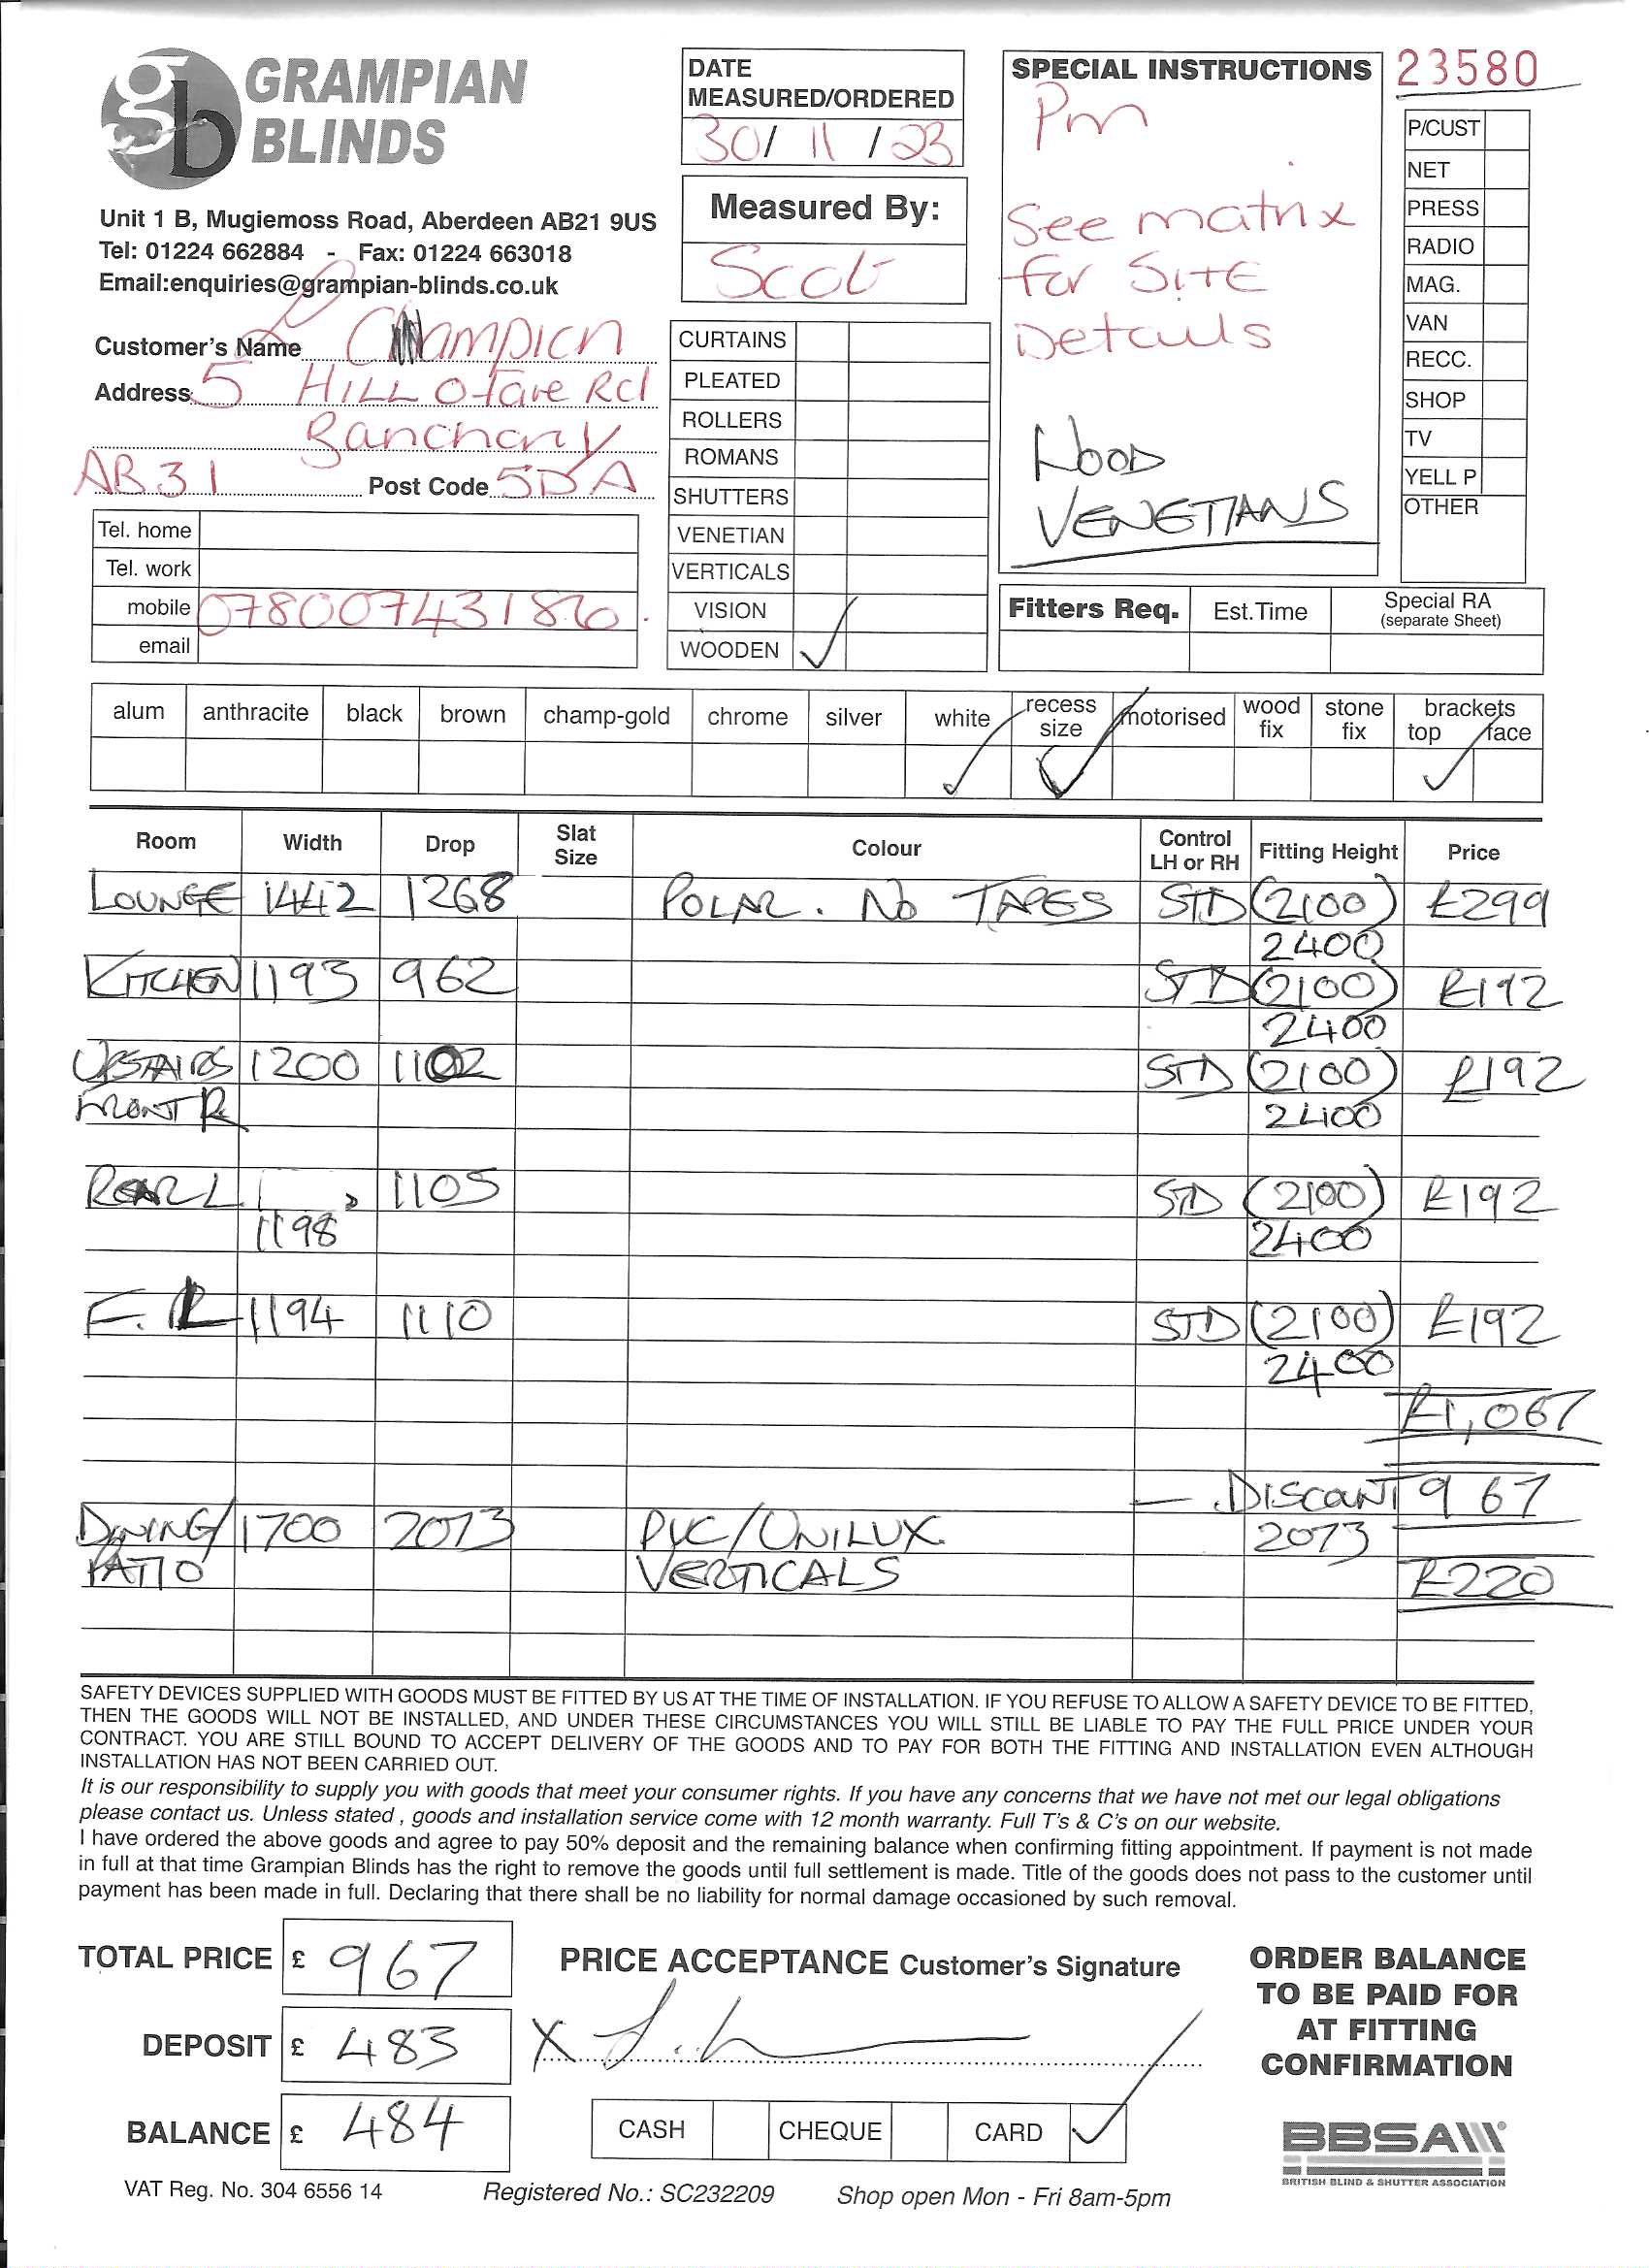 GRAMPIAN
BLINDS
Unit 1 B, Mugiemoss Road, Aberdeen AB21 9US
Tel: 01224 662884 - Fax: 01224 663018
Email:enquiries@grampian-blinds.co.uk
DATE
MEASURED/ORDERED
30/ 11 /23
Measured By:
Scot
SPECIAL INSTRUCTIONS
Pm
See matrix
for SITE
Details
WOOD
VENETIANS
23580
P/CUST
NET
PRESS
RADIO
MAG.
VAN
RECC.
SHOP
TV
YELL P
OTHER
Customer's Name L Champion
Address 5 HILL OFare Rd
Banchory
AB31 Post Code 5DA
Tel. home
Tel. work
mobile 07800743186
email
CURTAINS
PLEATED
ROLLERS
ROMANS
SHUTTERS
VENETIAN
VERTICALS
VISION
WOODEN ✓
Fitters Req. Est.Time Special RA
(separate Sheet)
alum anthracite black brown champ-gold chrome silver white recess size motorised wood fix stone fix brackets top face
✓ ✓ ✓
Room Width Drop Slat Size Colour Control LH or RH Fitting Height Price
LOUNGE 1442 1268 POLAR. NO TAPES STD (2100) £299
2400
KITCHEN 1193 962 STD (2100) £192
2400
UPSTAIRS 1200 1102 STD (2100) £192
FRONT R 2400
REAR L 1105 STD (2100) £192
1198 2400
F. L 1194 1110 STD (2100) £192
2400
£1,067
- DISCOUNT 967
DINING/ 1700 2073 PVC/UNILUX 2073
PATIO VERTICALS £220
SAFETY DEVICES SUPPLIED WITH GOODS MUST BE FITTED BY US AT THE TIME OF INSTALLATION. IF YOU REFUSE TO ALLOW A SAFETY DEVICE TO BE FITTED,
THEN THE GOODS WILL NOT BE INSTALLED, AND UNDER THESE CIRCUMSTANCES YOU WILL STILL BE LIABLE TO PAY THE FULL PRICE UNDER YOUR
CONTRACT. YOU ARE STILL BOUND TO ACCEPT DELIVERY OF THE GOODS AND TO PAY FOR BOTH THE FITTING AND INSTALLATION EVEN ALTHOUGH
INSTALLATION HAS NOT BEEN CARRIED OUT.
It is our responsibility to supply you with goods that meet your consumer rights. If you have any concerns that we have not met our legal obligations
please contact us. Unless stated , goods and installation service come with 12 month warranty. Full T's & C's on our website.
I have ordered the above goods and agree to pay 50% deposit and the remaining balance when confirming fitting appointment. If payment is not made
in full at that time Grampian Blinds has the right to remove the goods until full settlement is made. Title of the goods does not pass to the customer until
payment has been made in full. Declaring that there shall be no liability for normal damage occasioned by such removal.
TOTAL PRICE £ 967
DEPOSIT £ 483
BALANCE £ 484
PRICE ACCEPTANCE Customer's Signature
X
CASH CHEQUE CARD ✓
ORDER BALANCE
TO BE PAID FOR
AT FITTING
CONFIRMATION
BBSA
BRITISH BLIND & SHUTTER ASSOCIATION
VAT Reg. No. 304 6556 14 Registered No.: SC232209 Shop open Mon - Fri 8am-5pm